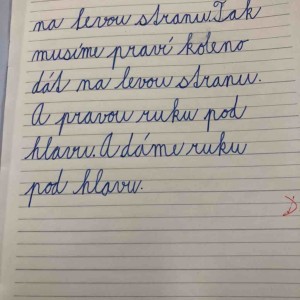 na levou stranu.Tak
musíme praví koleno
dát na levou stranu.
A pravou ruku pod
hlavu. A dáme ruku
pod hlavu.